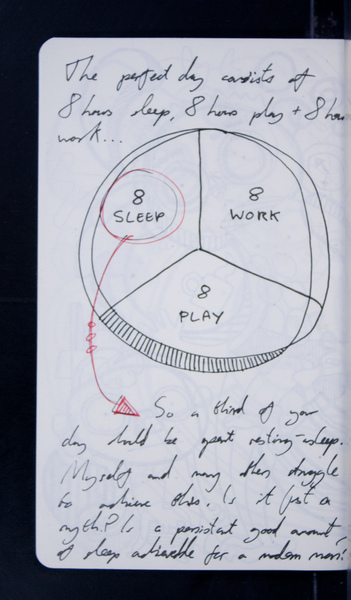 The perfect day consists of
8 hours sleep, 8 hours play + 8 hours
work...
8
SLEEP
8
WORK
8
PLAY
So a third of your
day should be spent resting-asleep.
Myself and many others struggle
to achieve this. Is it just a
myth? Is a persistant good amount
of sleep achievable for a modern man?